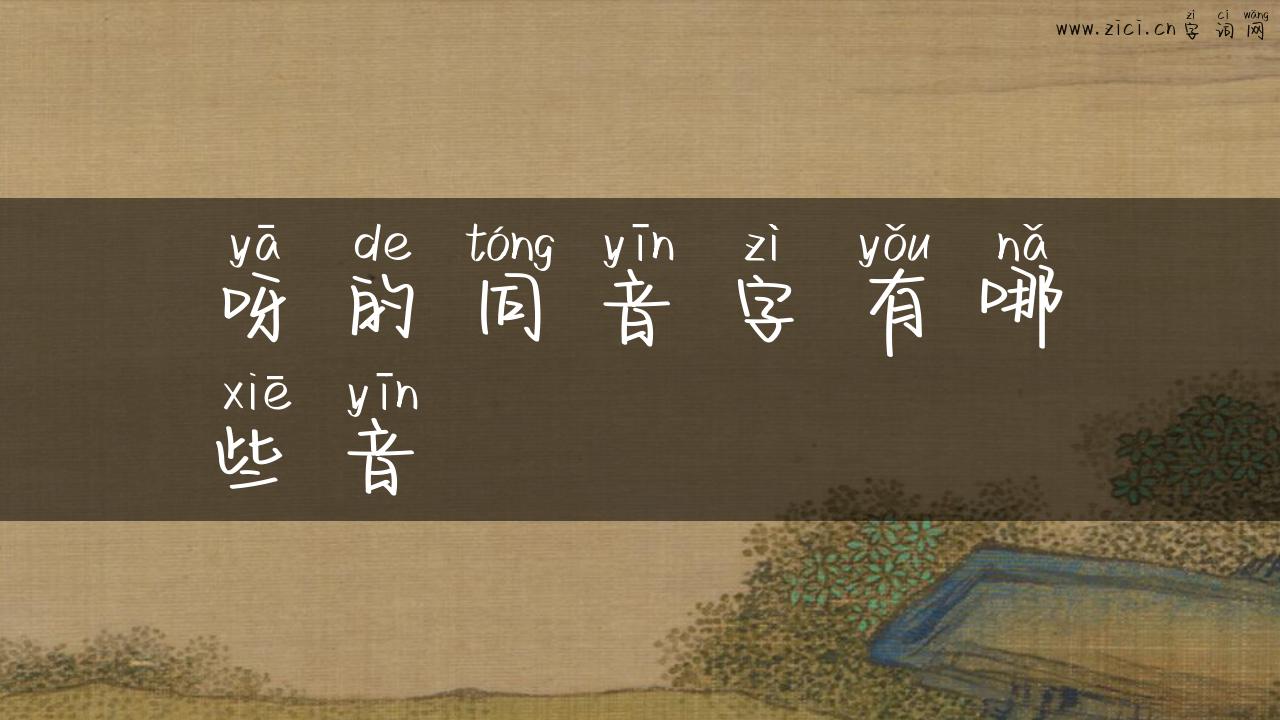 zì cí wǎng
www.zici.cn 字 词 网
yā de tóng yīn zì yǒu nǎ
呀 的 同 音 字 有 哪
xiē yīn
些 音